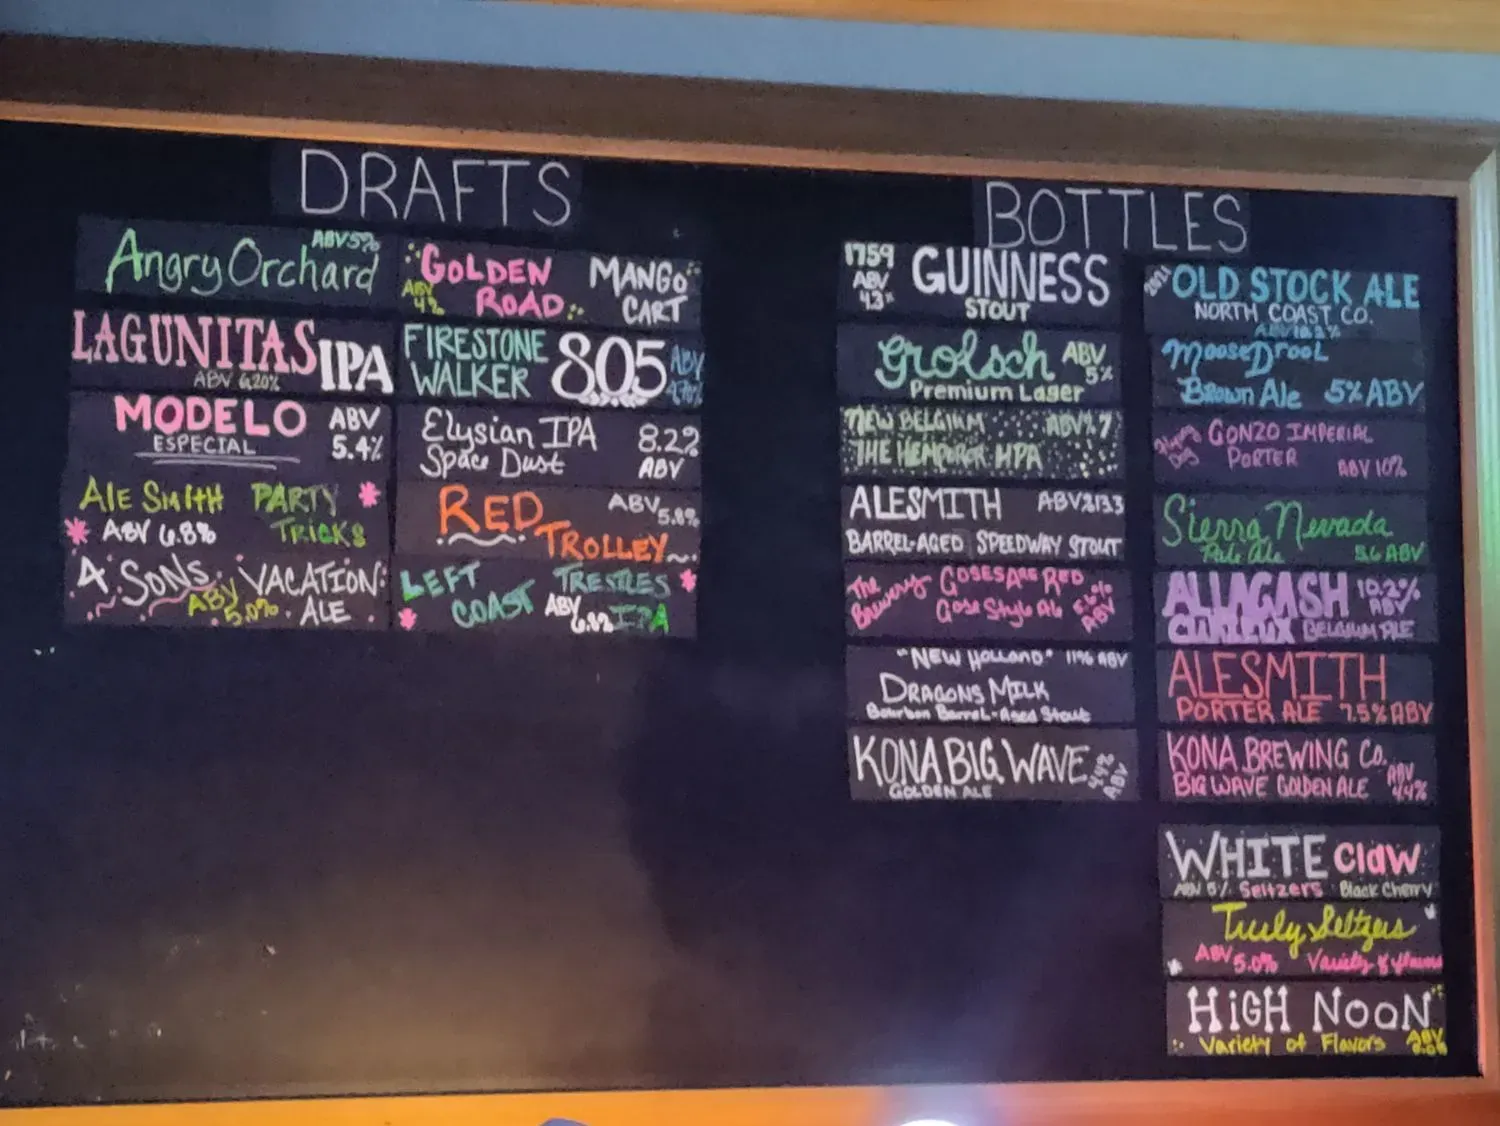 DRAFTS
Angry Orchard
ABV 5%
LAGUNITAS IPA
ABV 6.20%
MODELO
ESPECIAL
ABV
5.4%
ALE SMITH PARTY
TRICKS
ABV 6.8%
4 SONS VACATION
ALE
ABV
5.0%
GOLDEN
ROAD
ABV
4%
MANGO
CART
FIRESTONE
WALKER
805
ABV
Elysian IPA
Space Dust
8.2%
ABV
RED
TROLLEY
ABV
5.8%
LEFT
COAST
TRESTLES
IPA
ABV
BOTTLES
1759
ABV
4.3%
GUINNESS
STOUT
Grolsch
ABV
5%
Premium Lager
NEW BELGIUM
THE HEMPERER HPA
ALESMITH
BARREL-AGED SPEEDWAY STOUT
The
Brewery
GOSES ARE RED
Gose Style Ale
ABV
"NEW HOLLAND" 11% ABV
DRAGONS MILK
Bourbon Barrel-Aged Stout
KONA BIG WAVE
GOLDEN ALE
4.4%
ABV
2021
OLD STOCK ALE
NORTH COAST CO.
Moose Drool
Brown Ale 5% ABV
GONZO IMPERIAL
PORTER
ABV 10%
Sierra Nevada
Pale Ale
5.6 ABV
ALLAGASH
CURIEUX BELGIUM ALE
10.2%
ABV
ALESMITH
PORTER ALE 7.5% ABV
KONA BREWING CO.
BIG WAVE GOLDEN ALE
ABV
4.4%
WHITE Claw
ABV 5% Seltzers Black Cherry
Truly Seltzers
ABV 5.0% Variety of flavors
HIGH NOON
Variety of Flavors
ABV